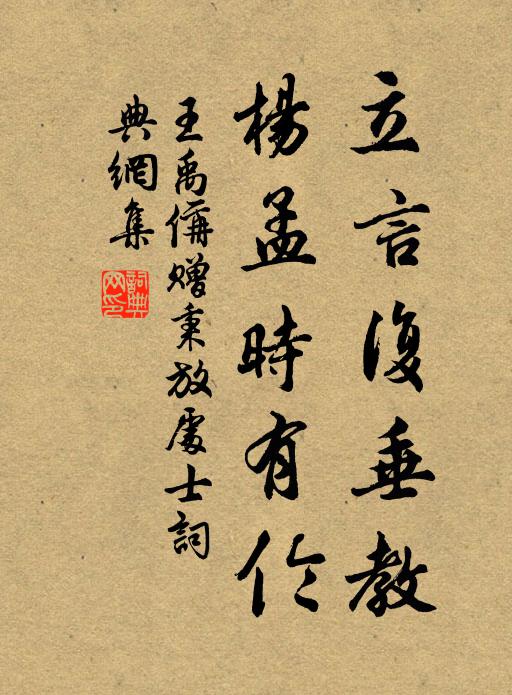 立言復垂教
楊孟時有伦
王禹偁贈秉放處士詞
典網集
詞典網印